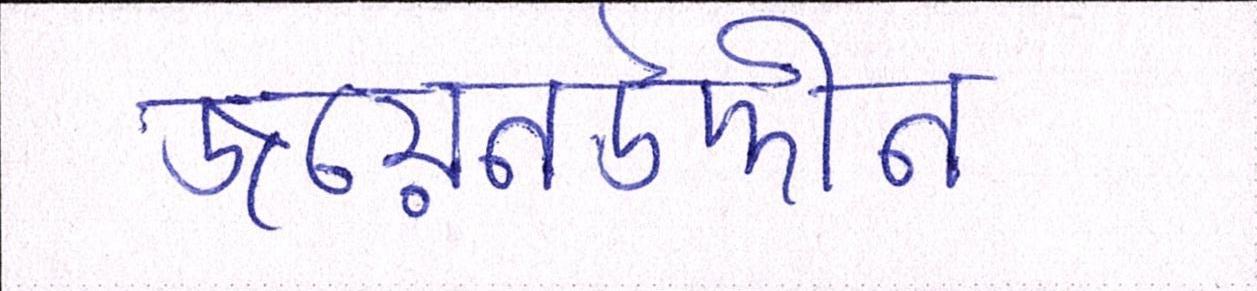 জয়েনউদ্দীন